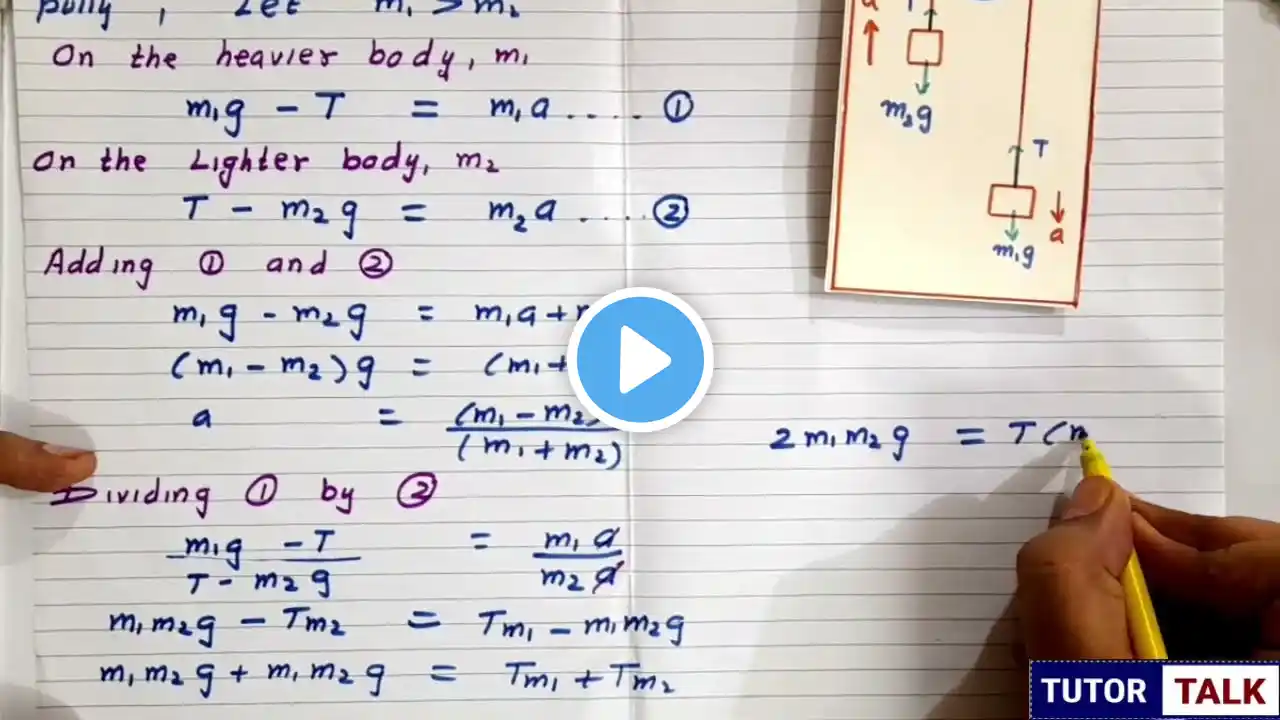 pully, Let m₁ > m₂
On the heavier body, m₁
m₁g - T = m₁a .... ①
On the Lighter body, m₂
T - m₂g = m₂a .... ②
Adding ① and ②
m₁g - m₂g = m₁a +
(m₁ - m₂)g = (m₁ +
a = (m₁ - m₂)
(m₁ + m₂)
Dividing ① by ②
m₁g - T = m₁a
T - m₂g m₂a
m₁m₂g - Tm₂ = Tm₁ - m₁m₂g
m₁m₂g + m₁m₂g = Tm₁ + Tm₂
a T
m₂g
T
m₁g a
2m₁m₂g = T(
TUTOR TALK